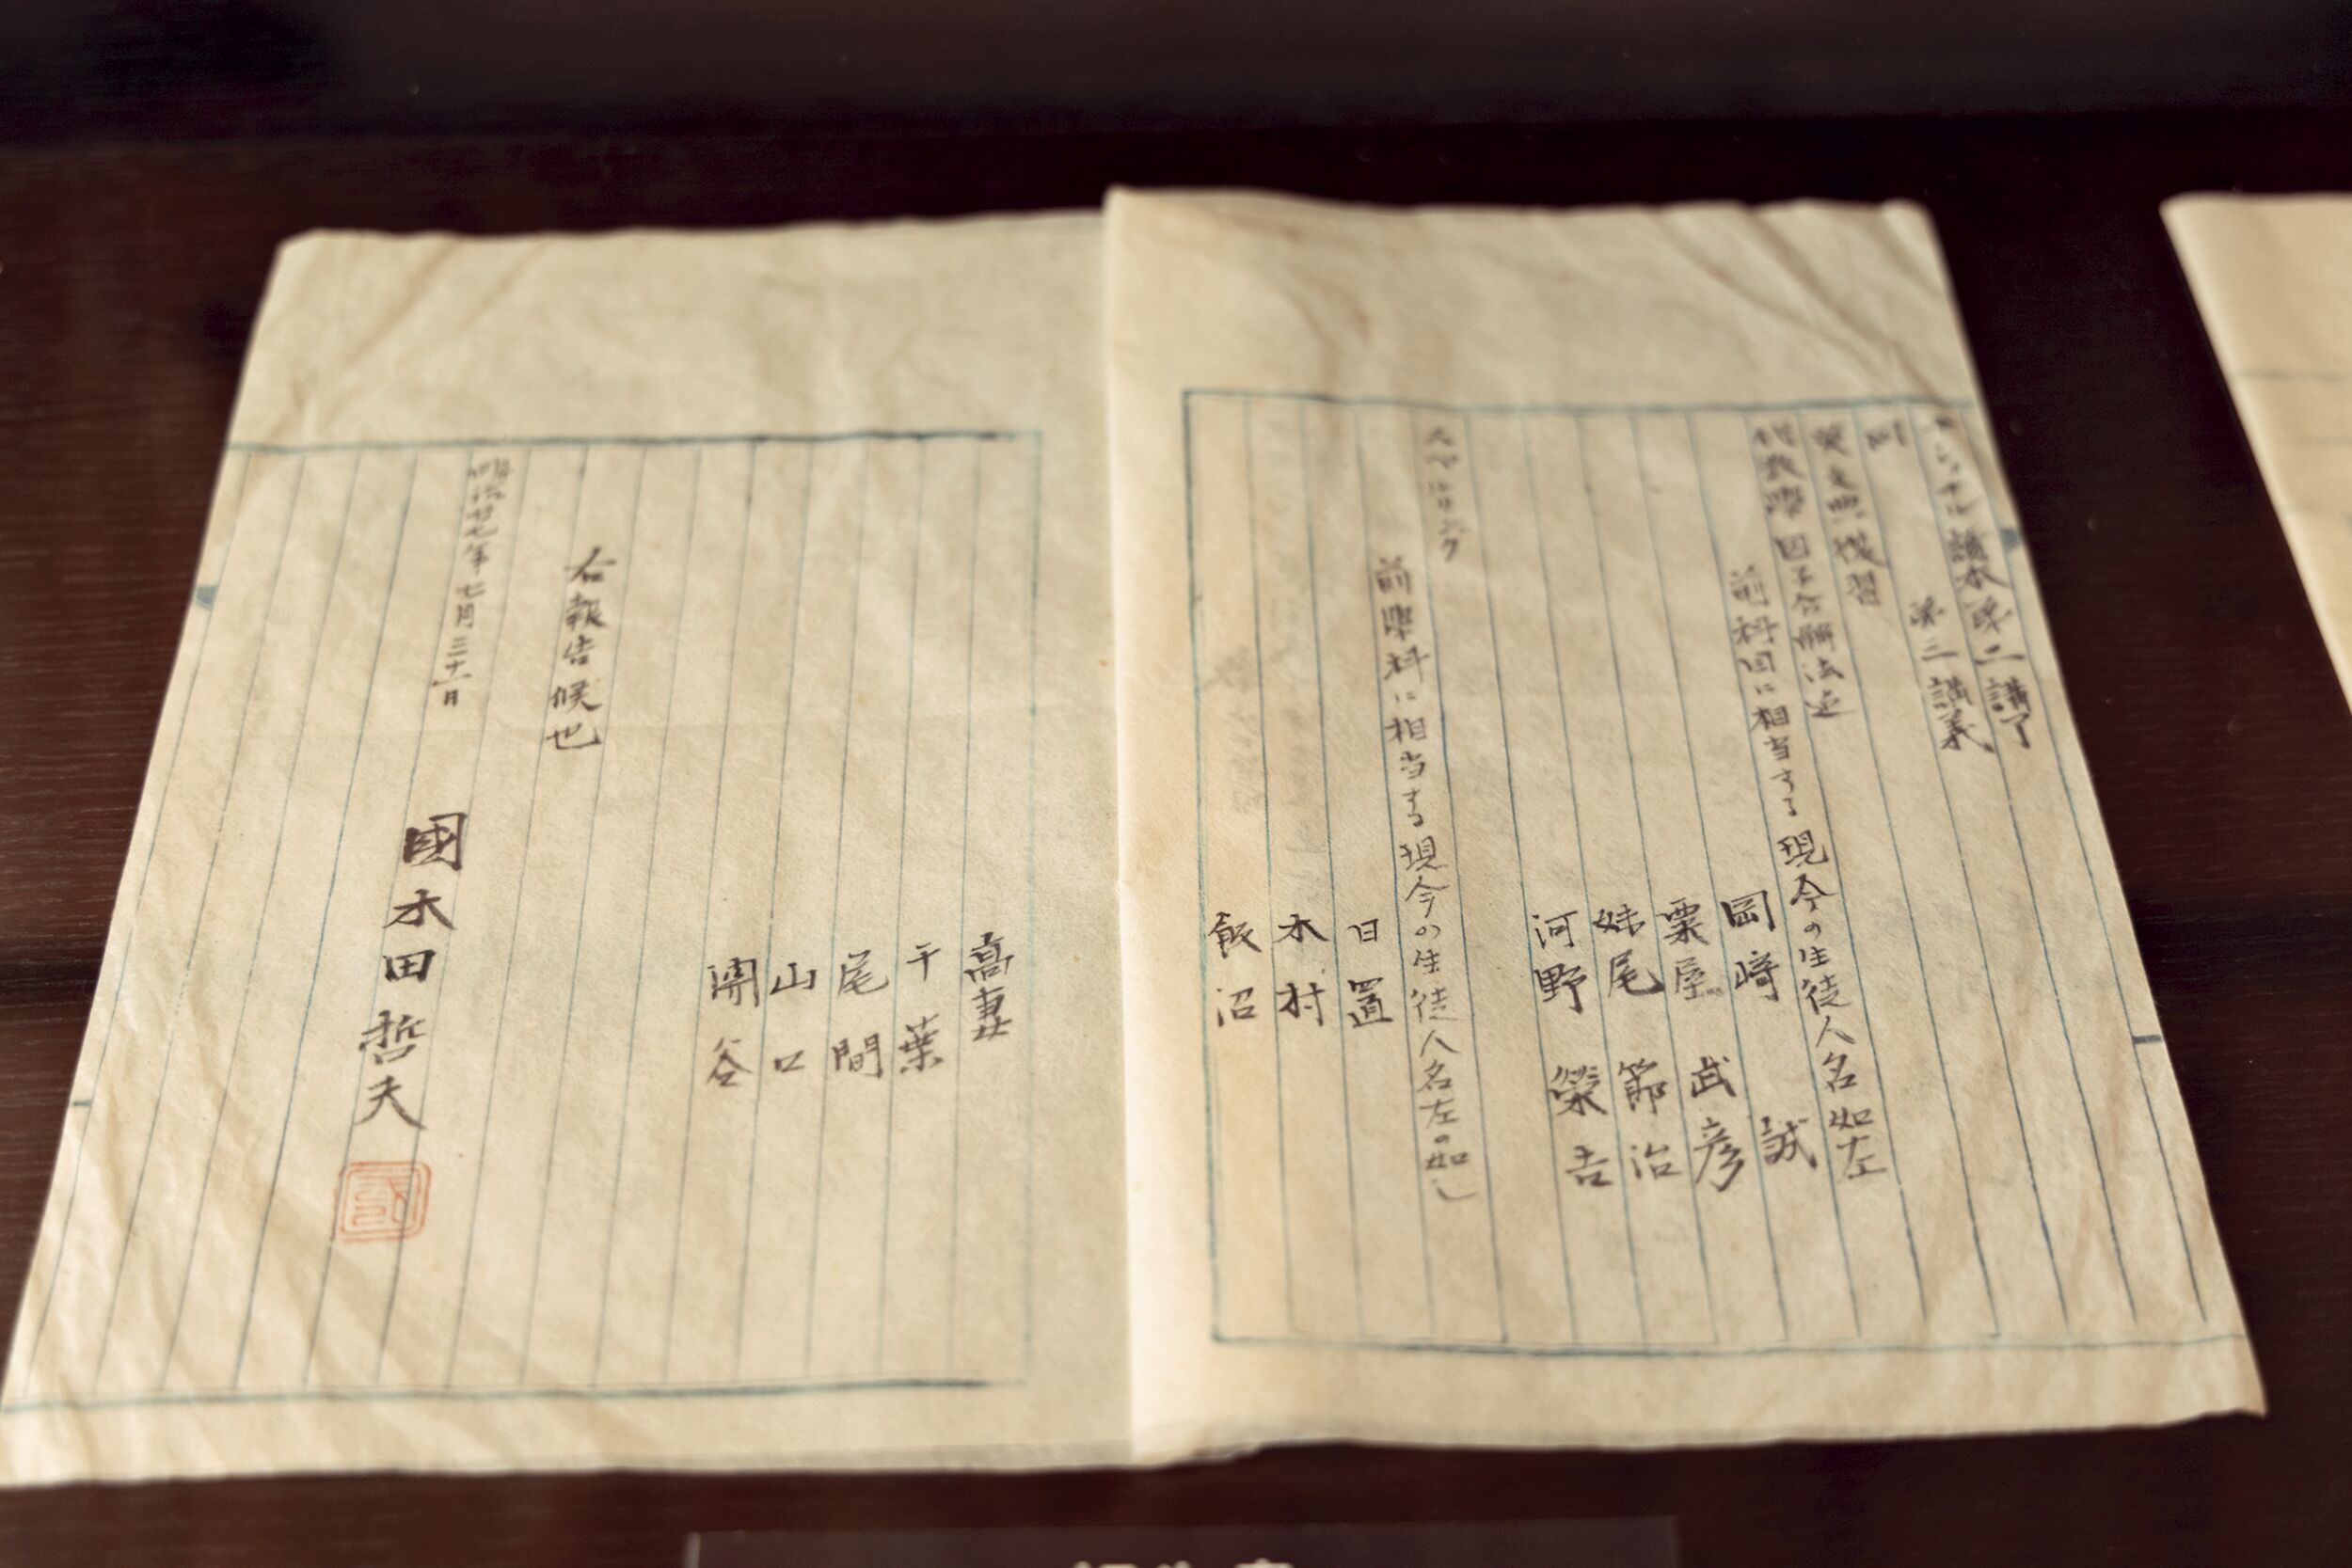 ナショナル讀本第二講了
同 第三講義
英文典復習
代数學 因子分解法迄
前科目に相当する現今の生徒人名如左
岡崎 誠
粟屋 武彦
妹尾 節治
河野 榮吉
スペリング
前學科に相当する現今の生徒人名左の如し
日置
木村
飯沼
高妻
千葉
尾間
山口
関谷
右報告候也
明治廿七年七月三十一日
國木田哲夫